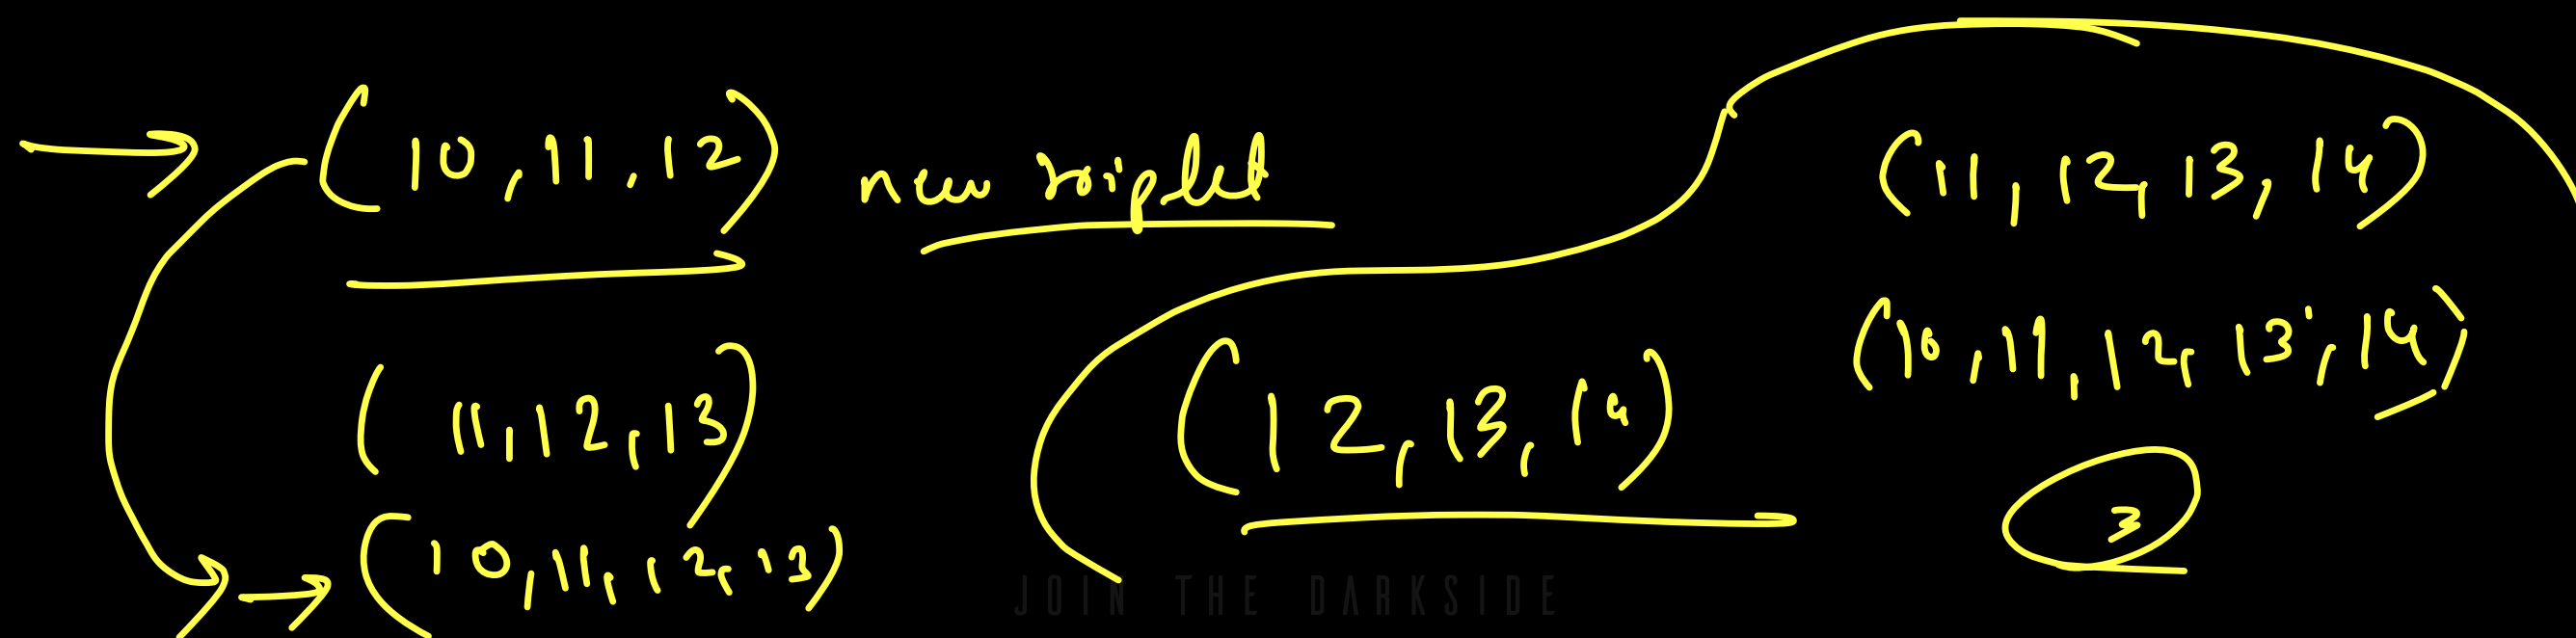 (10, 11, 12) new triplet
(11, 12, 13)
(10, 11, 12, 13)
(12, 13, 14)
(11, 12, 13, 14)
(10, 11, 12, 13, 14)
3
JOIN THE DARKSIDE